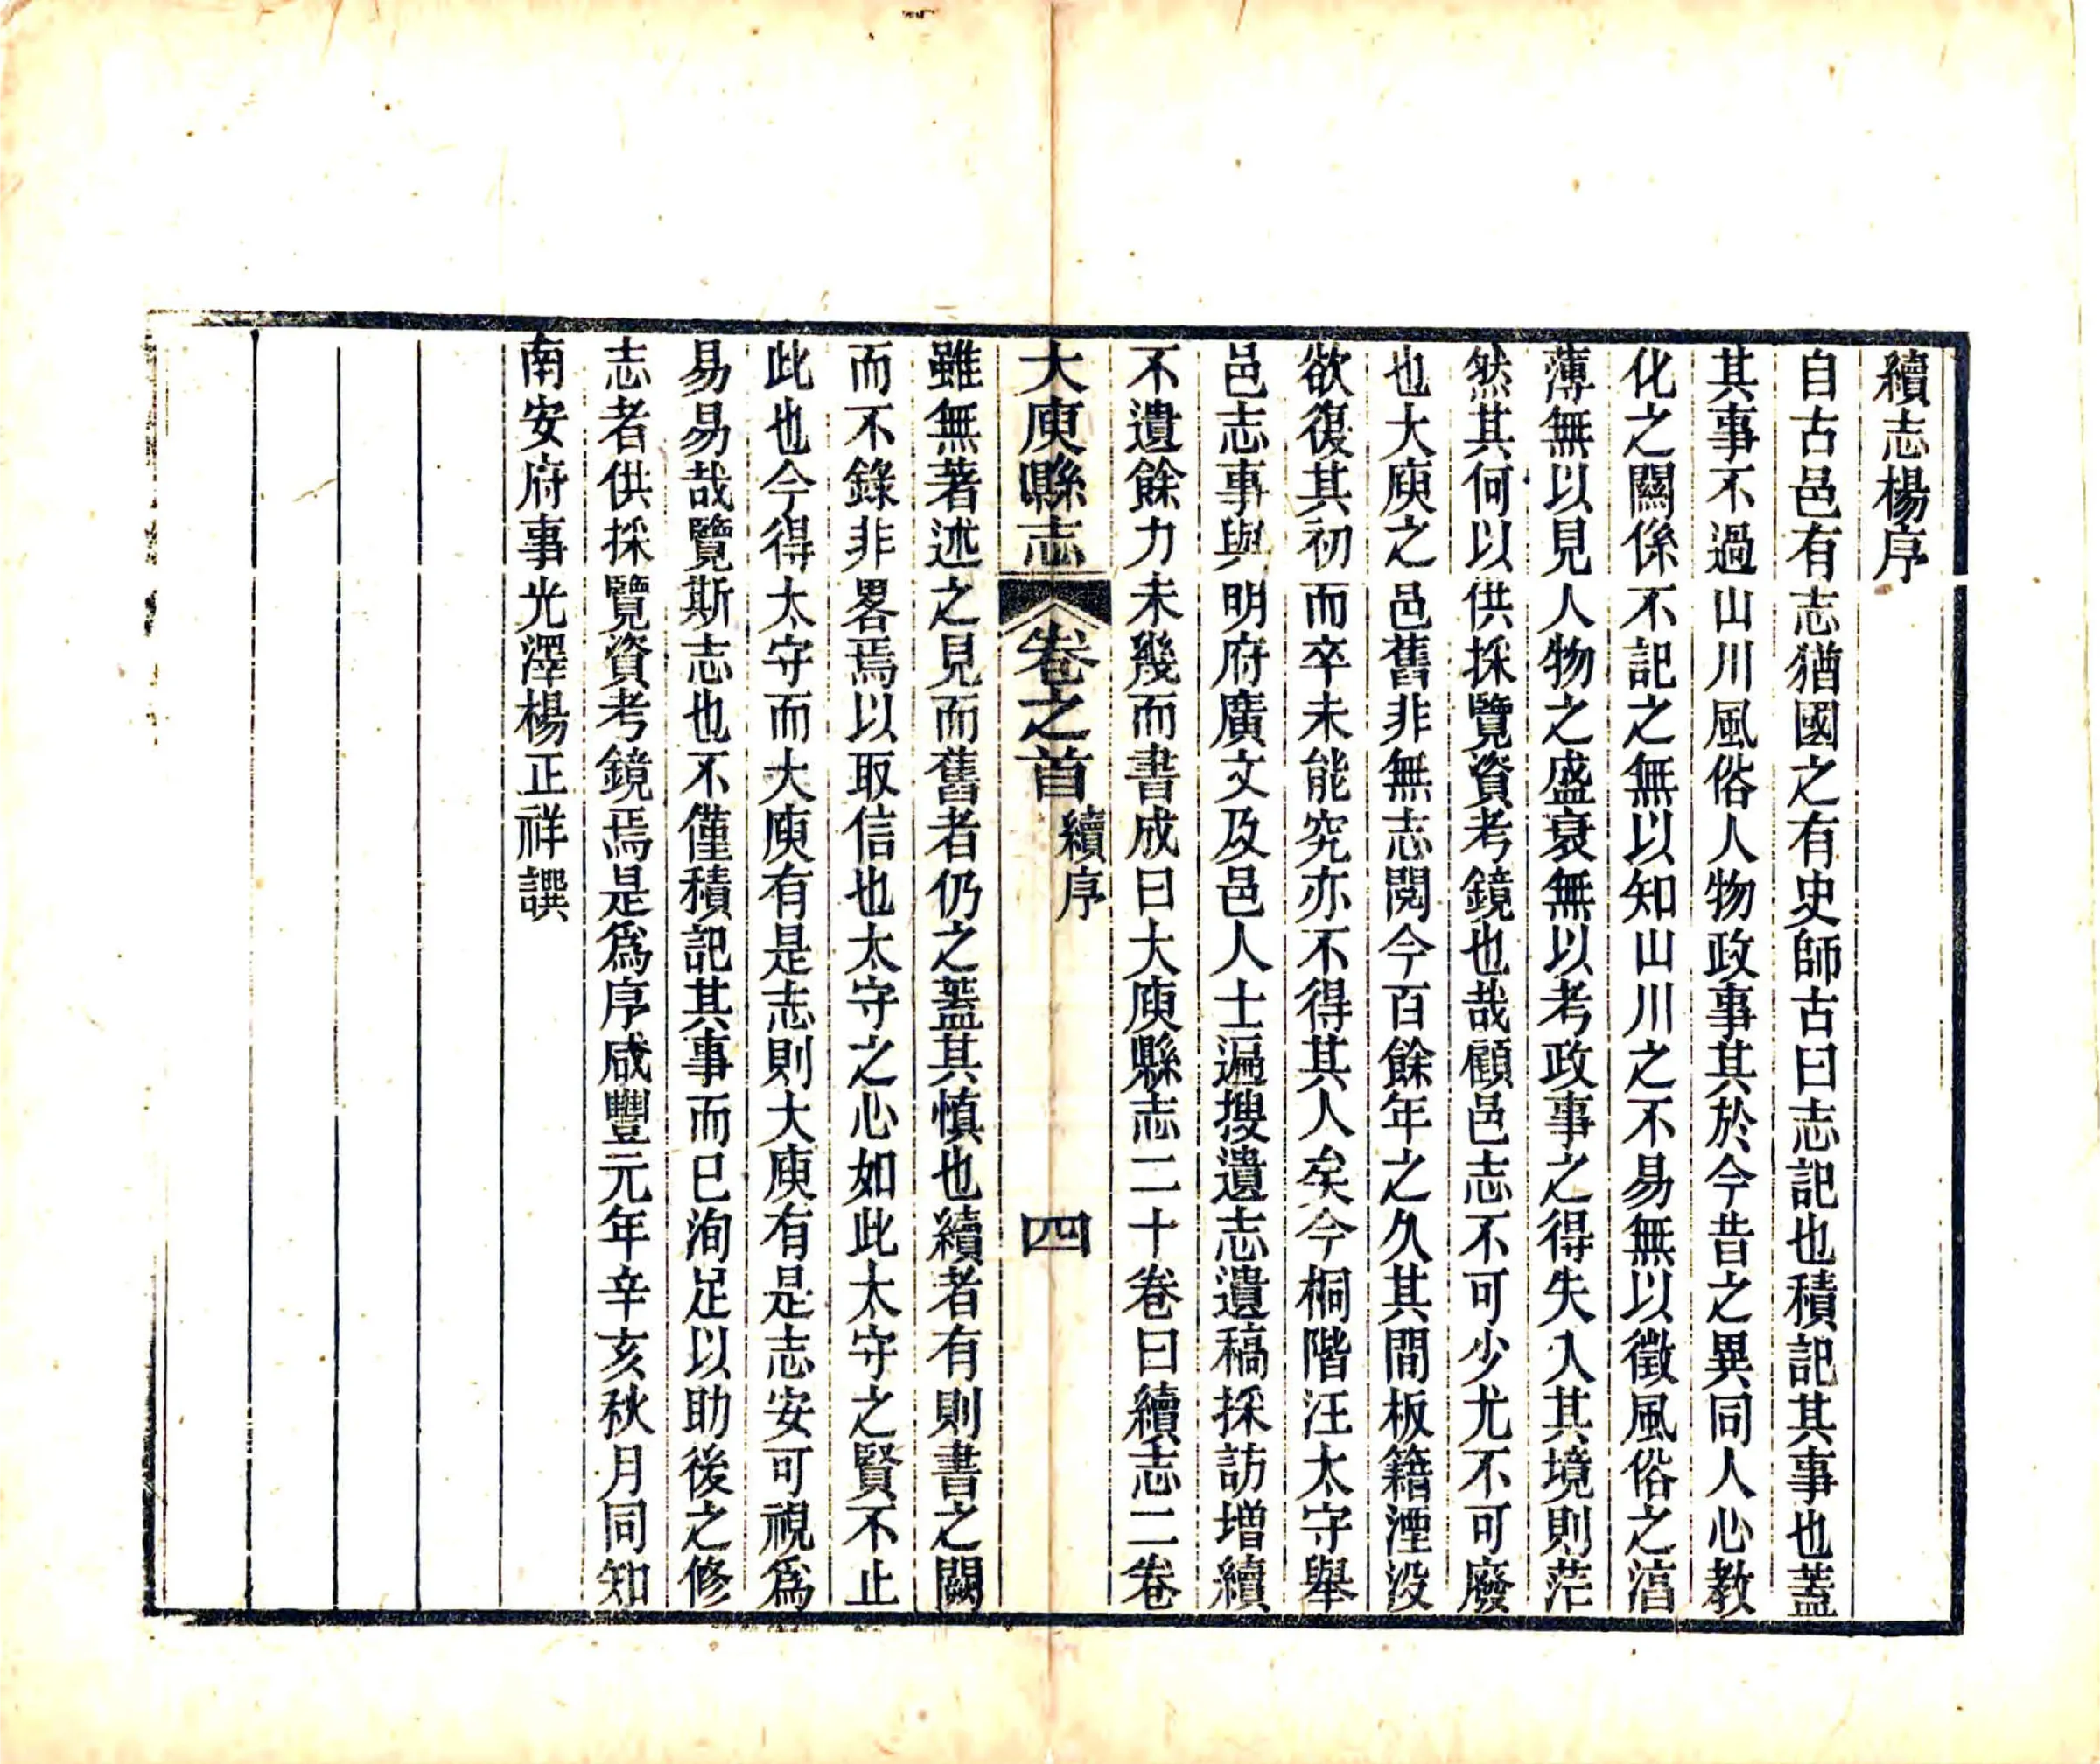 續志楊序
自古邑有志猶國之有史師古曰志記也積記其事也蓋
其事不過山川風俗人物政事其於今昔之異同人心教
化之關係不記之無以知山川之不易無以徵風俗之淳
薄無以見人物之盛衰無以考政事之得失入其境則茫
然其何以供採覽資考鏡也哉顧邑志不可少尤不可廢
也大庾之邑舊非無志閱今百餘年之久其間板籍湮没
欲復其初而卒未能究亦不得其人矣今桐階汪太守舉
邑志事與明府廣文及邑人士遍搜遺志遺稿採訪增續
不遺餘力未幾而書成曰大庾縣志二十卷曰續志二卷
大庾縣志 卷之首 續序 四
雖無著述之見而舊者仍之蓋其慎也續者有則書之闕
而不錄非畧焉以取信也太守之心如此太守之賢不止
此也今得太守而大庾有是志則大庾有是志安可視爲
易易哉覽斯志也不僅積記其事而已洵足以助後之修
志者供採覽資考鏡焉是爲序咸豐元年辛亥秋月同知
南安府事光澤楊正祥譔